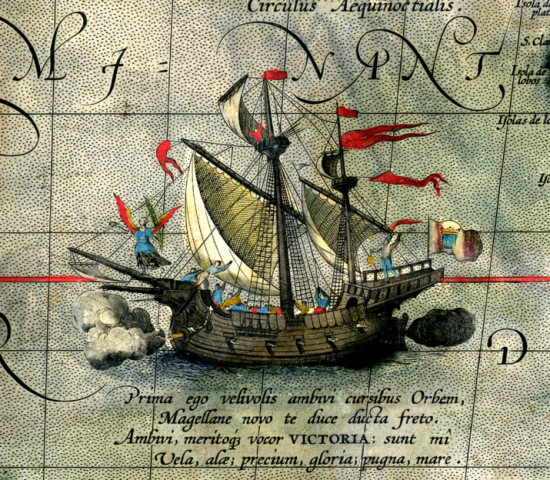 Circulus Aequinoctialis.
Isola de
plat
S. Cla
M
Isola de
lobos
Isolas de lo
D
Prima ego velivolis ambivi cursibus Orbem,
Magellane novo te duce ducta freto.
Ambivi, meritoq3 vocor VICTORIA: sunt mî
Vela, alæ; precium, gloria; pugna, mare.